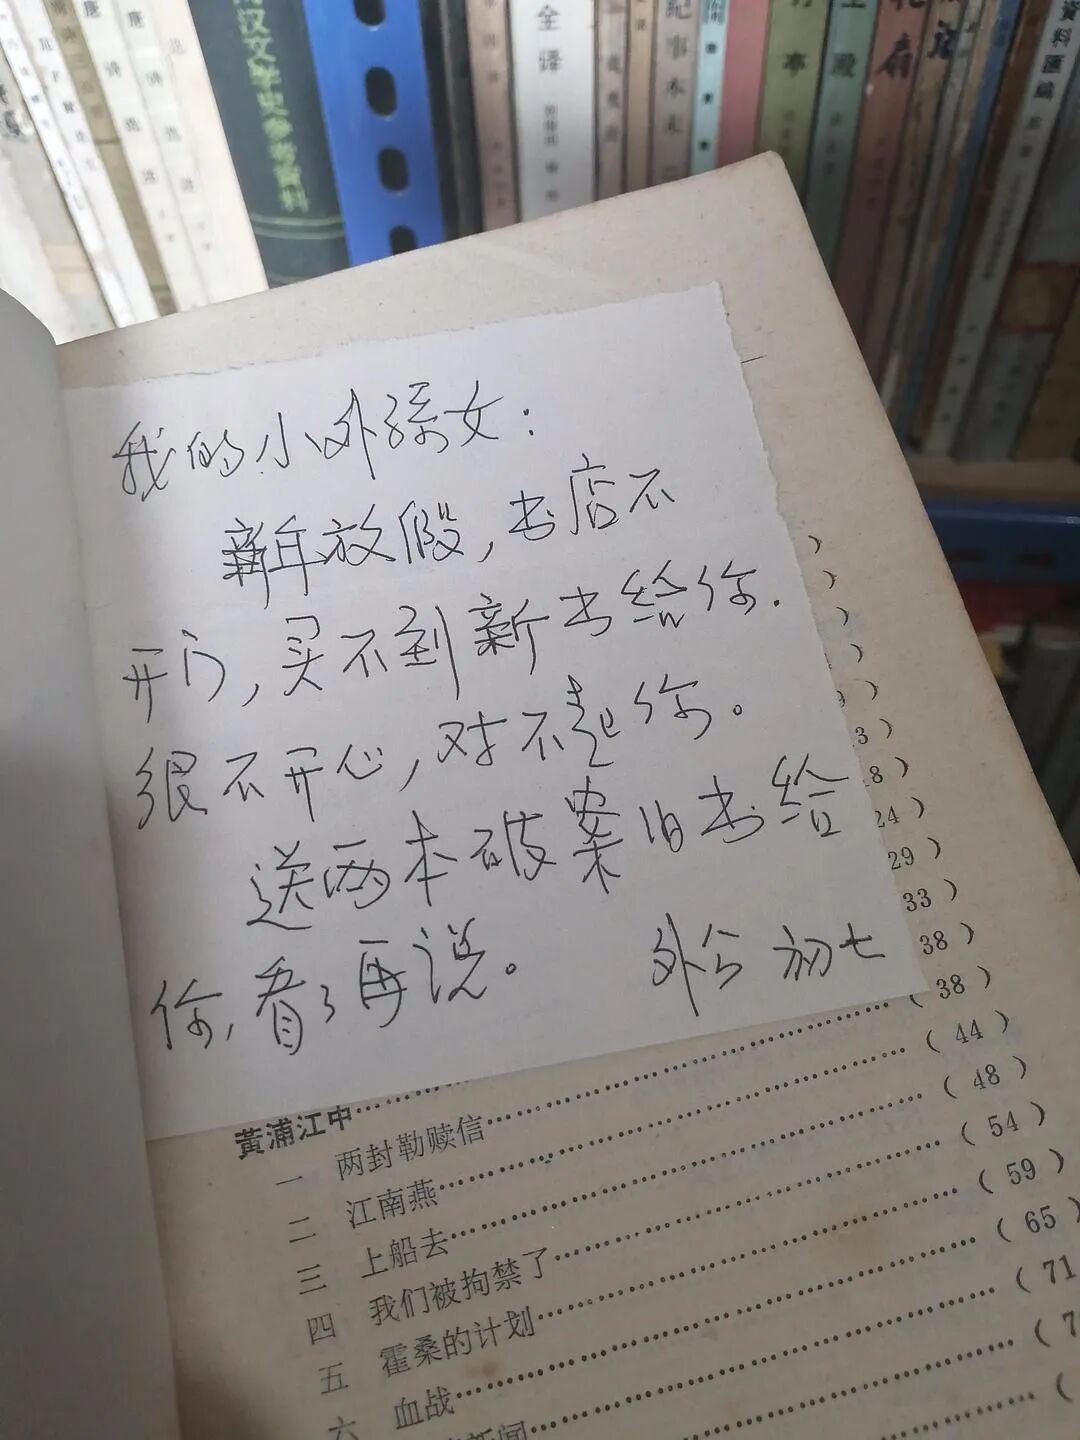 汉文学史参考资料
全译
纪事本末
亭
扇
资料汇编
我的小外孫女：
新年放假，书店不
开门，买不到新书给你.
很不开心，对不起你。
送两本破案旧书给
你，看了再说。 外公 初七
24
29 )
33 )
38 )
( 38 )
黄浦江中 ( 44 )
一 两封勒赎信 ( 48 )
二 江南燕 ( 54 )
三 上船去 ( 59 )
四 我们被拘禁了 ( 65 )
五 霍桑的计划 ( 71
六 血战
新闻